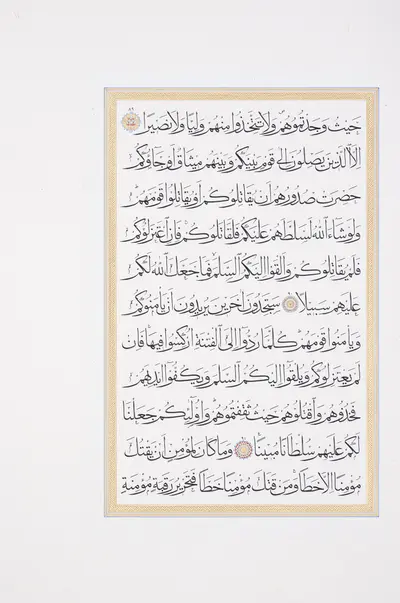 حَيْثُ وَجَدْتُمُوهُمْ وَلَا تَتَّخِذُوا مِنْهُمْ وَلِيًّا وَلَا نَصِيرًا
اِلَّا الَّذِينَ يَصِلُونَ اِلَى قَوْمٍ بَيْنَكُمْ وَبَيْنَهُمْ مِيثَاقٌ اَوْ جَاؤُكُمْ
حَصِرَتْ صُدُورُهُمْ اَنْ يُقَاتِلُوكُمْ اَوْ يُقَاتِلُوا قَوْمَهُمْ
وَلَوْ شَاءَ اللّٰهُ لَسَلَّطَهُمْ عَلَيْكُمْ فَلَقَاتَلُوكُمْ فَاِنِ اعْتَزَلُوكُمْ
فَلَمْ يُقَاتِلُوكُمْ وَاَلْقَوْا اِلَيْكُمُ السَّلَمَ فَمَا جَعَلَ اللّٰهُ لَكُمْ
عَلَيْهِمْ سَبِيلًا سَتَجِدُونَ اٰخَرِينَ يُرِيدُونَ اَنْ يَأْمَنُوكُمْ
وَيَأْمَنُوا قَوْمَهُمْ كُلَّمَا رُدُّوا اِلَى الْفِتْنَةِ اُرْكِسُوا فِيهَا فَاِنْ
لَمْ يَعْتَزِلُوكُمْ وَيُلْقُوا اِلَيْكُمُ السَّلَمَ وَيَكُفُّوا اَيْدِيَهُمْ
فَخُذُوهُمْ وَاقْتُلُوهُمْ حَيْثُ ثَقِفْتُمُوهُمْ وَاُولٰئِكُمْ جَعَلْنَا
لَكُمْ عَلَيْهِمْ سُلْطَانًا مُبِينًا وَمَا كَانَ لِمُؤْمِنٍ اَنْ يَقْتُلَ
مُؤْمِنًا اِلَّا خَطَأً وَمَنْ قَتَلَ مُؤْمِنًا خَطَأً فَتَحْرِيرُ رَقَبَةٍ مُؤْمِنَةٍ